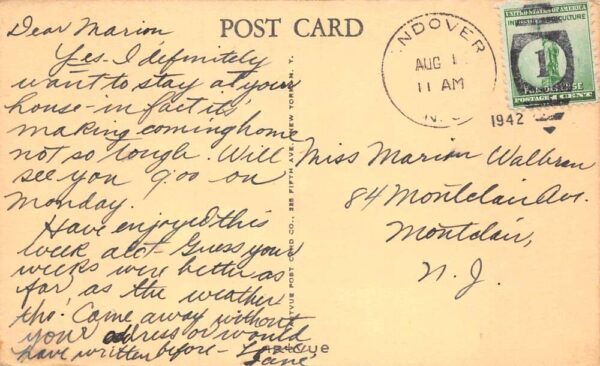 POST CARD
Dear Marion
Yes - I definitely
want to stay at your
house - in fact it's
making coming home
not so tough. Will
see you 9:00 on
Monday.
Have enjoyed this
week alot - Guess your
weeks were better as
far as the weather
tho! Came away without
your address or would
have written before -
Jane
ARTVUE
ARTVUE POST CARD CO., 225 FIFTH AVE., NEW YORK, N. Y.
ANDOVER
AUG 1
11 AM
N.
1942
UNITED STATES OF AMERICA
INDUSTRY AGRICULTURE
1
FOR DEFENSE
POSTAGE 1 CENT
Miss Marion Walbran
84 Montclair Ave.
Montclair,
N. J.